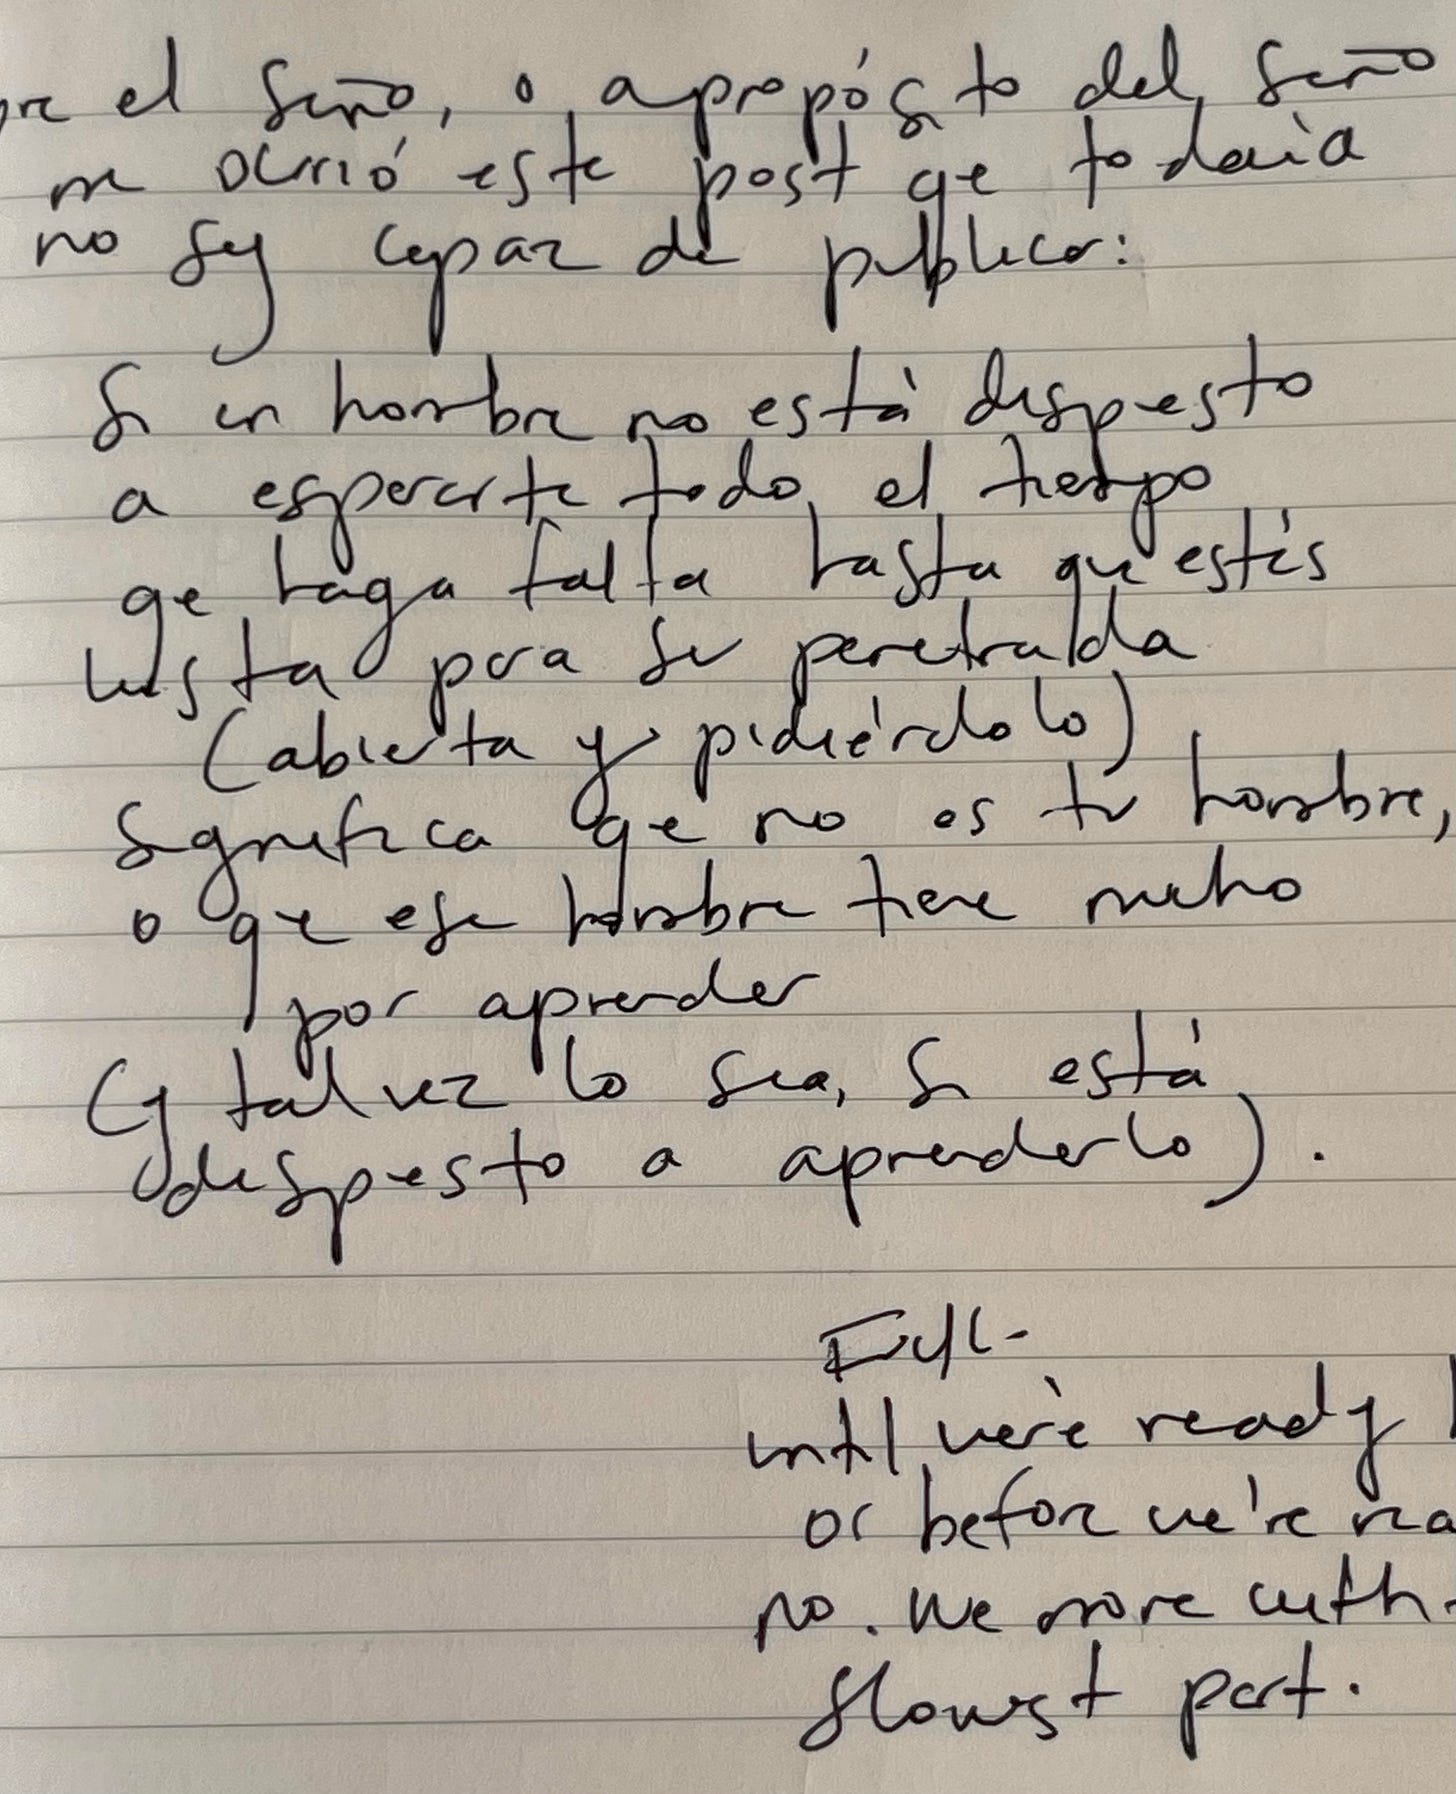 el sueño, o a propósito del sueño
me ocurrió este post que todavía
no soy capaz de publicar:
Si un hombre no está dispuesto
a esperarte todo el tiempo
que haga falta hasta que estés
lista para ser penetrada
(abierta y pidiéndolo)
significa que no es tu hombre,
o que ese hombre tiene mucho
por aprender
(y tal vez lo sea, si está
dispuesto a aprenderlo).
until we're ready
or before we're
no. We move with
slowest part.